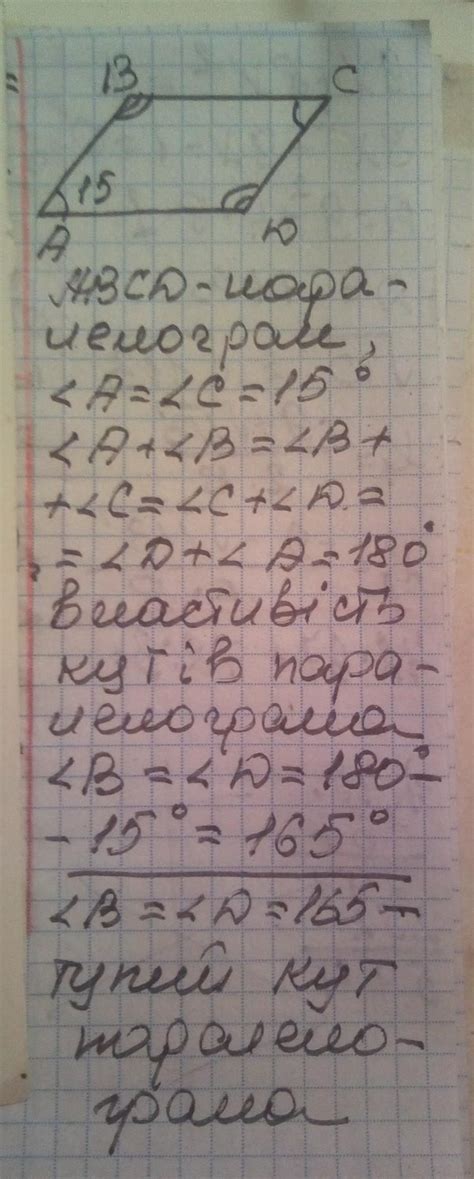 B C
15
A D
ABCD - пара-
лелограм,
∠A=∠C=15°
∠A+∠B=∠B+
+∠C=∠C+∠D=
=∠D+∠A=180°
властивість
кутів пара-
лелограма
∠B=∠D=180°-
-15°=165°
∠B=∠D=165-
тупий кут
паралело-
грама